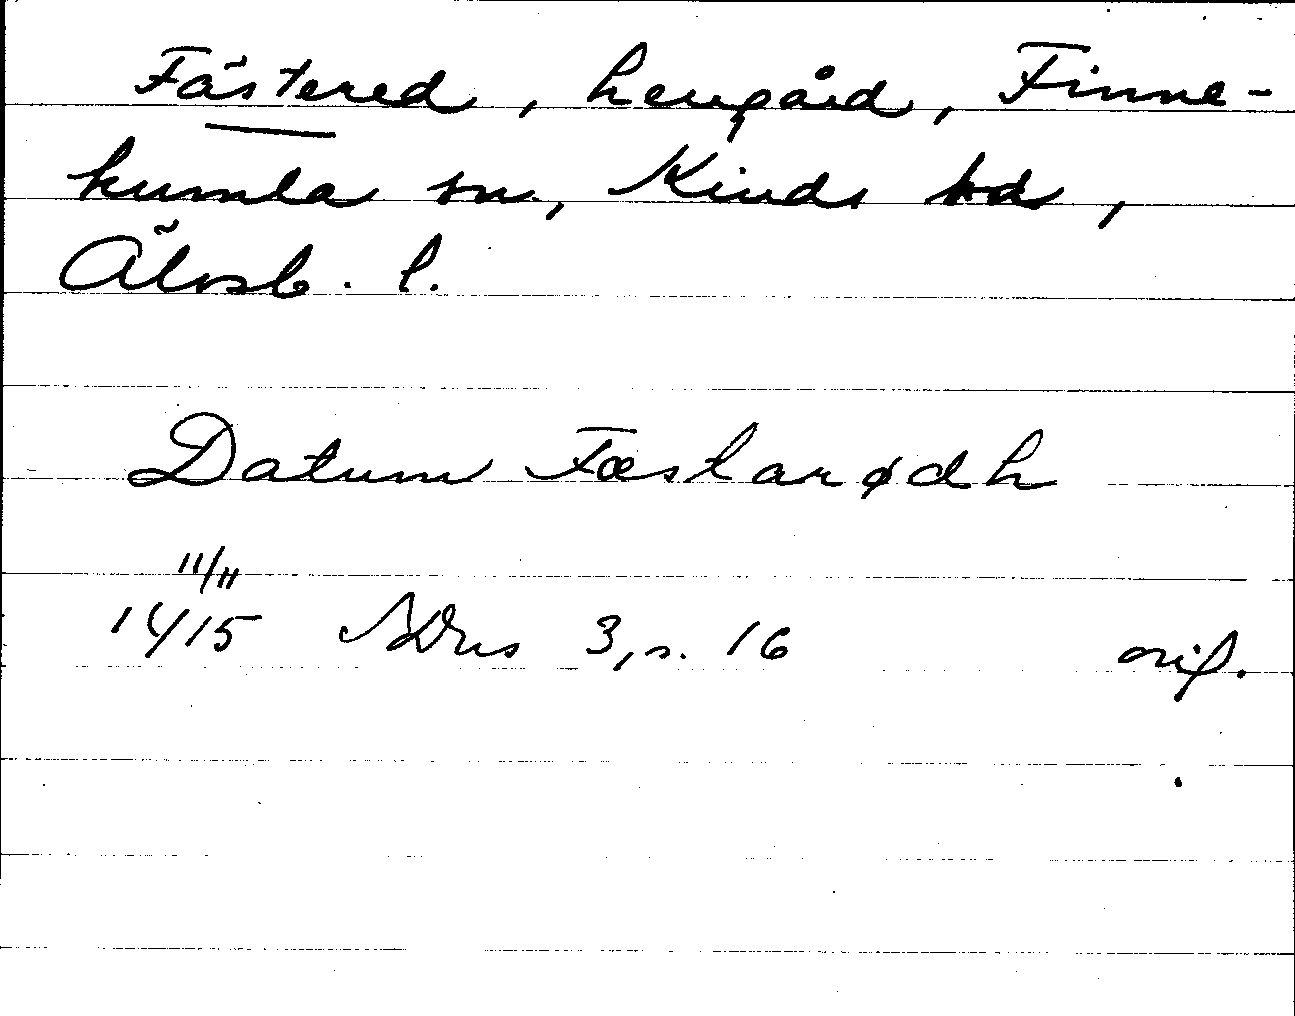 Fästered, herrgård, Finne-
kumla sn, Kinds hd,
Älvsb. l.
Datum Fæstarødh
11/11
1415 NDns 3, s. 16 orig.